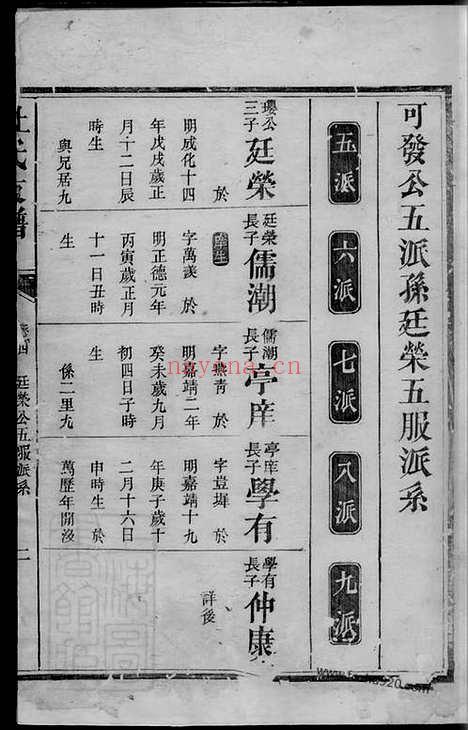 可發公五派孫廷榮五服派系
五派
六派
七派
八派
九派
瓊公三子廷榮
於
明成化十四
年戊戌歲正
月十二日辰
時生
與兄居九
廷榮長子儒潮
庠生
字萬護 於
明正德元年
丙寅歲正月
十一日丑時
生
儒潮長子亭庠
字燕青 於
明嘉靖二年
癸未歲九月
初四日子時
生
係二里九
亭庠長子學有
字豈墀 於
明嘉靖十九
年庚子歲十
二月十六日
申時生 於
萬歷年間沒
學有長子仲康
詳後
廷榮公五服派系
nayina.cn